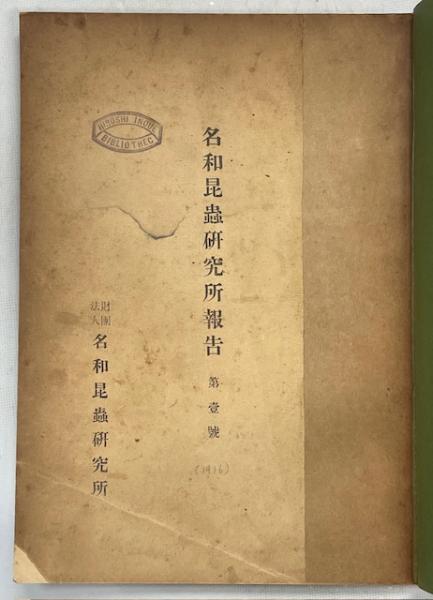 名和昆蟲研究所報告 第壹號
(1916)
財團
法人
名和昆蟲研究所
HIROSHI INOUE
BIBLIOTHEC